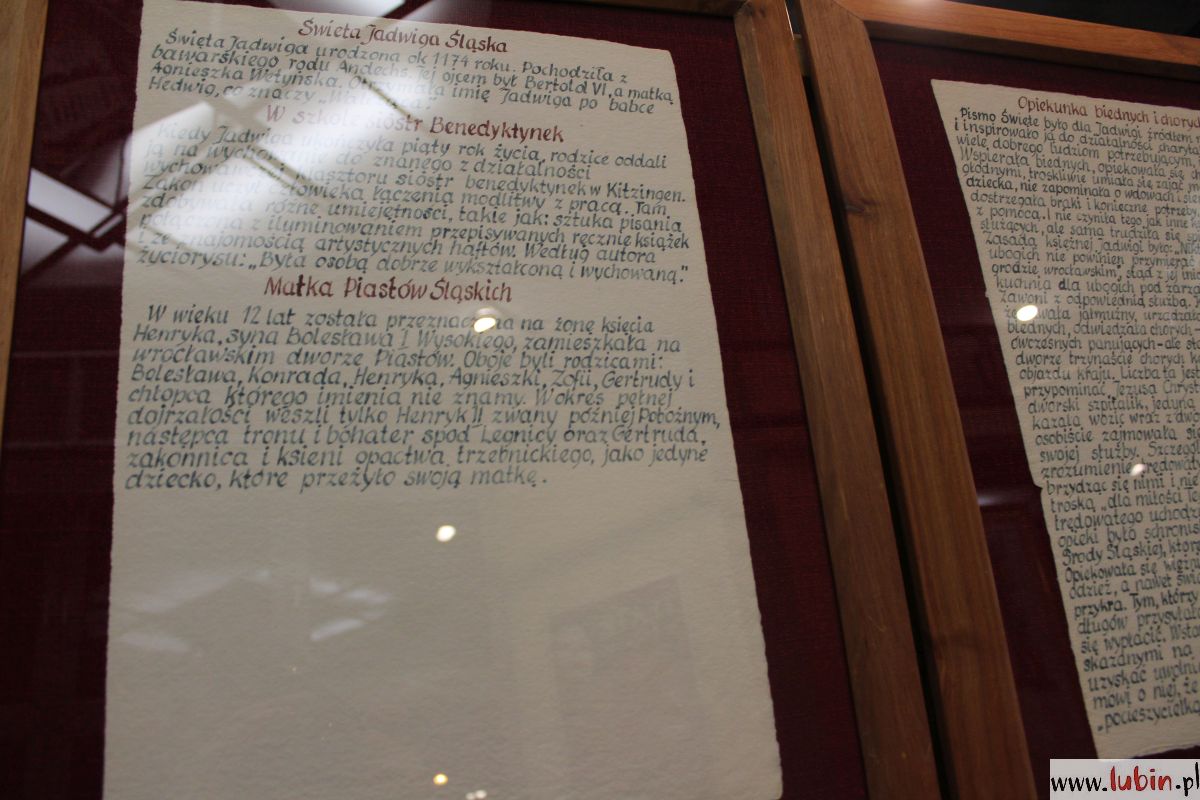 Święta Jadwiga Śląska
Święta Jadwiga urodzona ok 1174 roku. Pochodziła z
bawarskiego rodu Andechs. Jej ojcem był Bertold VI, a matką
Agnieszka Wetyńska. Otrzymała imię Jadwiga po babce
Hedwig, co znaczy
W szkole sióstr Benedyktynek
Kiedy Jadwiga ukończyła piąty rok życia, rodzice oddali
ją na wychowanie do znanego z działalności
wychowawczej klasztoru sióstr benedyktynek w Kitzingen.
Zakon uczył człowieka łączenia modlitwy z pracą. Tam
zdobywała różne umiejętności, takie jak: sztuka pisania
połączona z iluminowaniem przepisywanych ręcznie książek
i ze znajomością artystycznych haftów. Według autora
życiorysu: „Była osobą dobrze wykształconą i wychowaną."
Matka Piastów Śląskich
W wieku 12 lat została przeznaczona na żonę księcia
Henryka, syna Bolesława I Wysokiego, zamieszkała na
wrocławskim dworze Piastów. Oboje byli rodzicami:
Bolesława, Konrada, Henryka, Agnieszki, Zofii, Gertrudy i
chłopca którego imienia nie znamy. W okres pełnej
dojrzałości weszli tylko Henryk II zwany później Pobożnym,
następca tronu i bohater spod Legnicy oraz Gertruda,
zakonnica i ksieni opactwa trzebnickiego, jako jedyne
dziecko, które przeżyło swoją matkę.
Opiekunka biednych i chorych
Pismo Święte było dla Jadwigi źródłem
i inspirowało ją do działalności
wiele dobrego ludziom potrzebującym
Wspierała biednych, opiekowała się
głodnymi, troskliwie umiała się zająć
dziecka, nie zapominała o wdowach i
dostrzegała braki i konieczne
z pomocą. I nie czyniła tego jak inne
służących, ale sama trudziła się
Zasadą księżnej Jadwigi było:
ubogich nie powinien przymierać
grodzie wrocławskim, stąd z jej
kuchnia dla ubogich pod
Zawoni z odpowiednią służbą.
jałmużny, urządzała
biednych, odwiedzała chorych
ówczesnych panujących - ale
dworze trzynaście chorych
objazdu kraju. Liczba ta
przypominać Jezusa
dworski szpitalik, jedyną
kazała wozić wraz z
osobiście zajmowała się
swojej służby.
zrozumienie
brzydząc się nimi i nie
troską „dla miłości
trędowatego
opieki było schronisko
Środy Śląskiej,
Opiekowała się
odzież, a nawet
przykra. Tym, którzy
długów
się wypłacić.
skazanymi na
uzyskać
mówi o niej, że
„pocieszycielką
www.lubin.pl